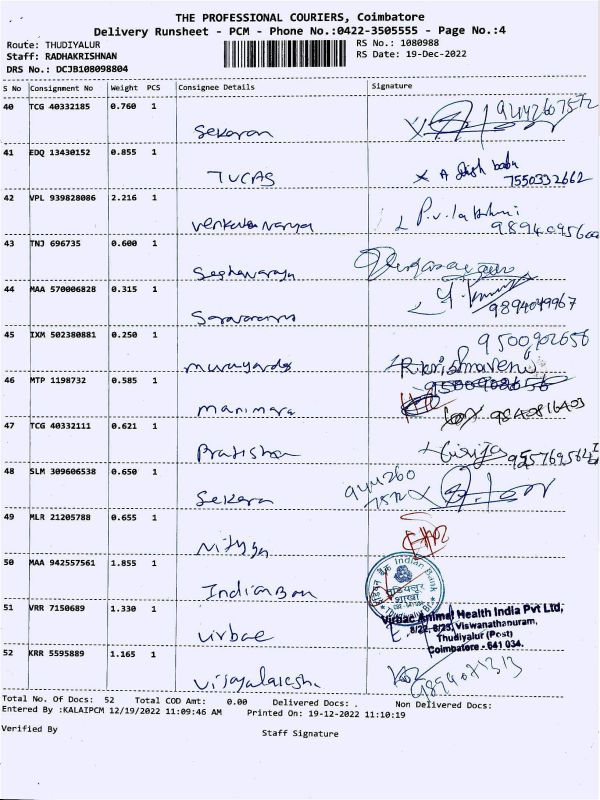 THE PROFESSIONAL COURIERS, Coimbatore
Delivery Runsheet - PCM - Phone No.:0422-3505555 - Page No.:4
Route: THUDIYALUR
RS No.: 1080988
Staff: RADHAKRISHNAN
RS Date: 19-Dec-2022
DRS No.: DCJB108098804
S No Consignment No Weight PCS Consignee Details Signature
40 TCG 40332185 0.760 1
9442607572
Sekaran
41 EDQ 13430152 0.855 1
TUCAS
7550332662
42 VPL 939828086 2.216 1
P.V.lakshmi
43 TNJ 696735 0.600 1
44 MAA 570006828 0.315 1
9894049967
45 IXM 502380881 0.250 1
9500902656
R.krishnaveni
46 MTP 1198732 0.585 1
9840816403
47 TCG 40332111 0.621 1
Girija
48 SLM 309606538 0.650 1
944260
7572
Sekara
49 MLR 21205788 0.655 1
Nithya
50 MAA 942557561 1.855 1
Indian Bank
Indian Ban
51 VRR 7150689 1.330 1
Virbac Animal Health India Pvt Ltd,
8/22, 8/23, Viswanathanuram,
Thudiyalur (Post)
Coimbatore - 641 034.
Virbac
52 KRR 5595889 1.165 1
Total No. Of Docs: 52 Total COD Amt: 0.00 Delivered Docs: . Non Delivered Docs:
Entered By :KALAIPCM 12/19/2022 11:09:46 AM Printed On: 19-12-2022 11:10:19
Verified By
Staff Signature